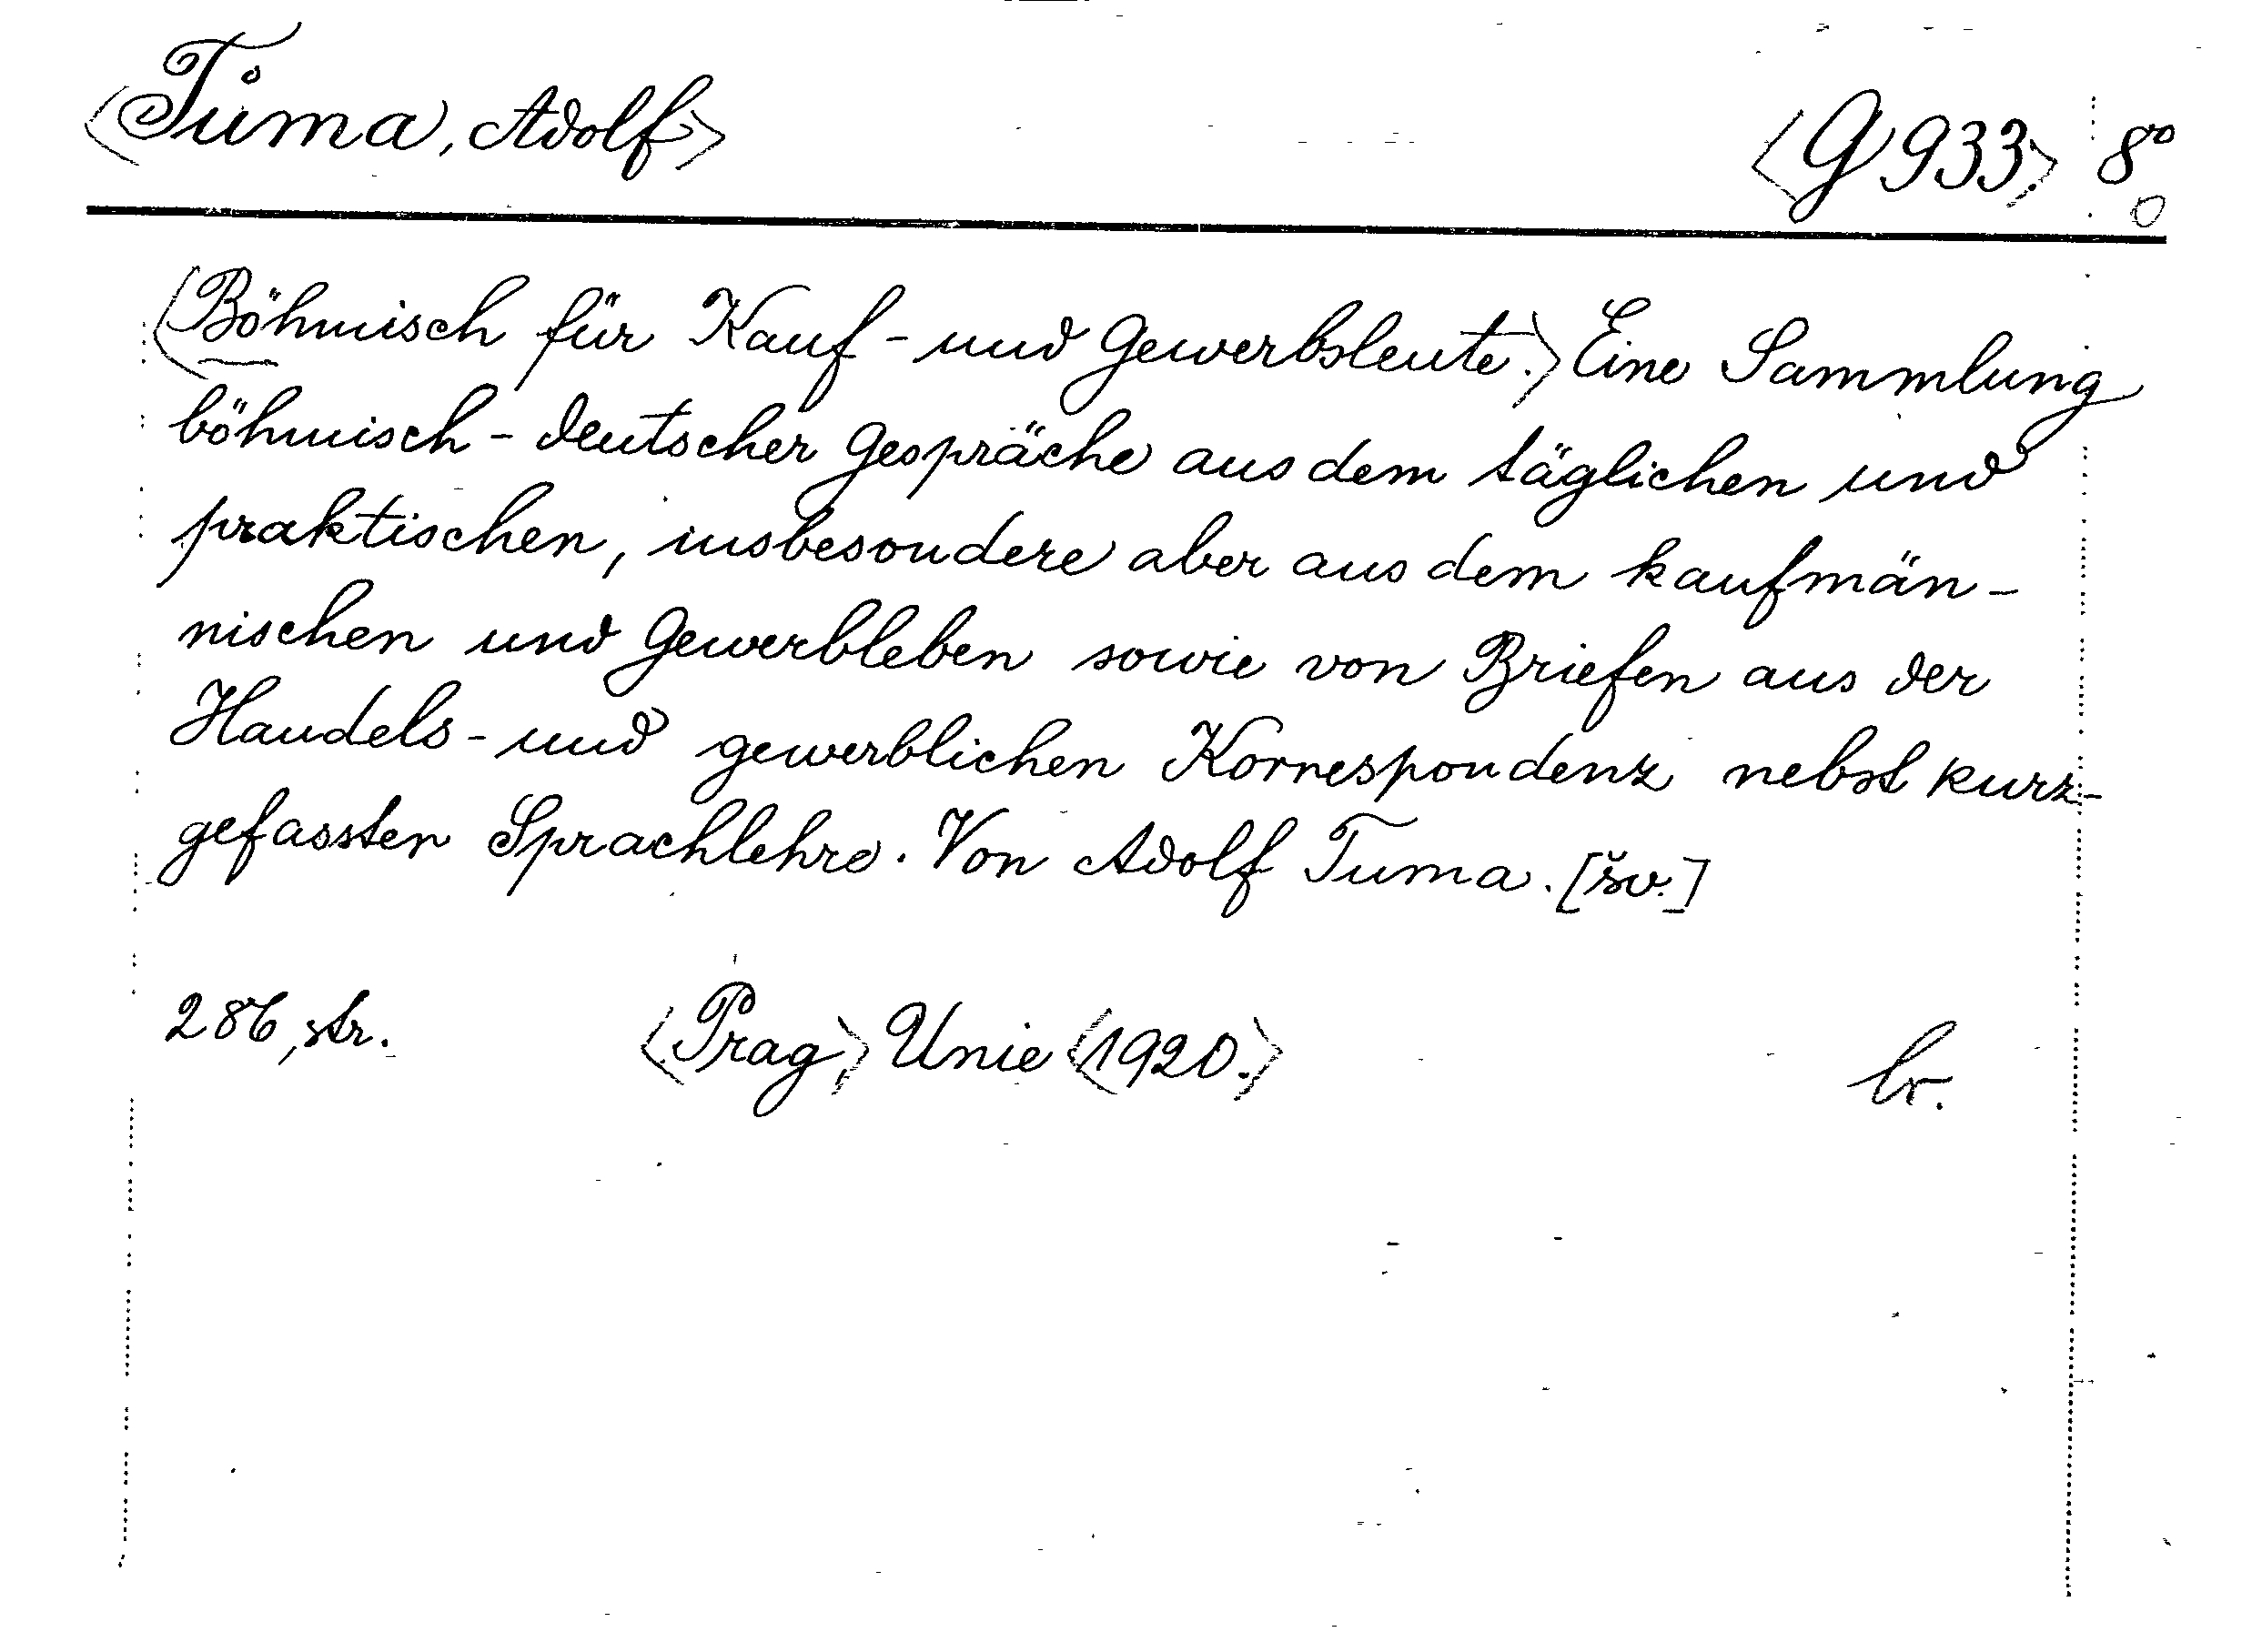 <Tůma, Adolf> <G 933.> 8°
<Böhmisch für Kauf- und Gewerbsleute.> Eine Sammlung
böhmisch-deutscher Gespräche aus dem täglichen und
praktischen, insbesondere aber aus dem kaufmän-
nischen und Gewerbleben sowie von Briefen aus der
Handels- und gewerblichen Korrespondenz nebst kurz-
gefasster Sprachlehre. Von Adolf Tuma. [šv.]
286, str. <Prag,> Unie <1920.>